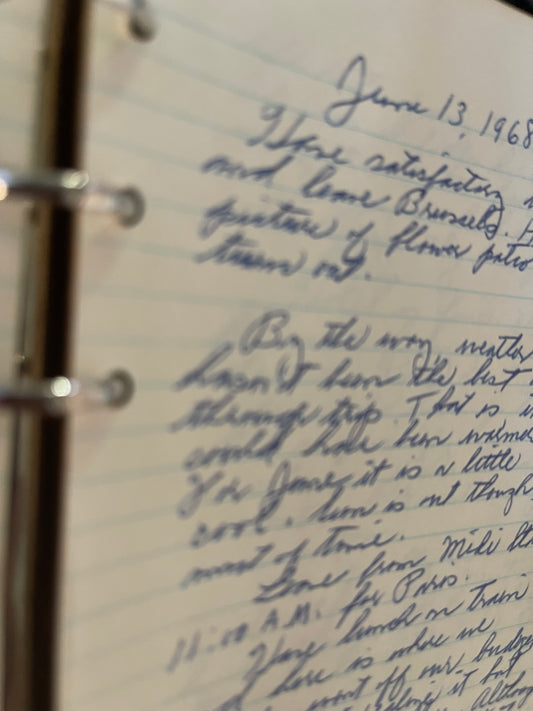 June 13, 1968
Have satisfactory
and leave Brussels.
picture of flower
turn out.
By the way, weather
hasn't been the best
through trip. That is
could have been warmer
For June it is a little
cool. Sun is out though
most of time.
Leave from Midi
11:00 A.M. for Paris.
Have lunch on train
here is where we
went off our budget
it but